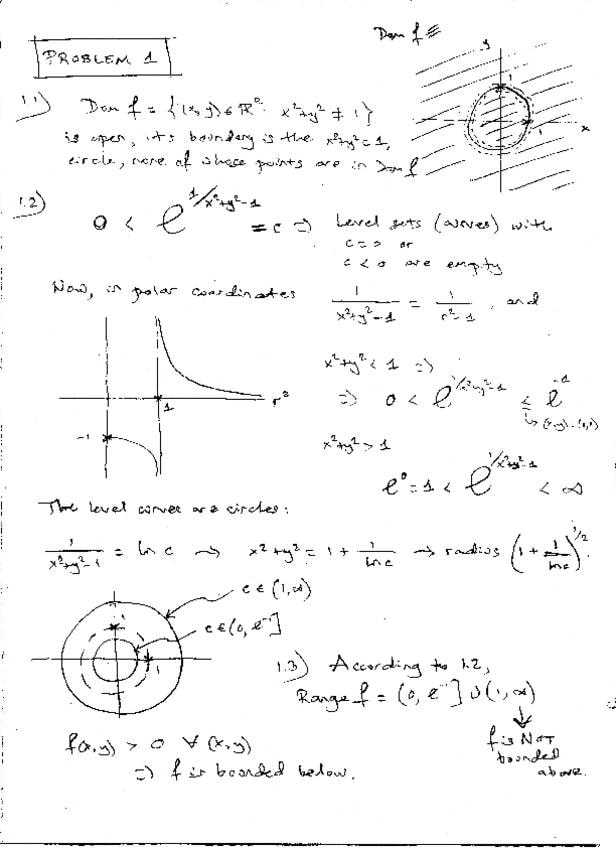 Dom f =
PROBLEM 1
1.1) Dom f = {(x,y) ∈ ℝ²: x²+y² ≠ 1}
is open, its boundary is the x²+y²=1,
circle, none of whose points are in Dom f
y
1
1
x
1.2) 0 < e^{1/x²+y²-1} = c ⇒ Level sets (curves) with
c = 0 or
c < 0 are empty
Now, in polar coordinates 1/(x²+y²-1) = 1/(r²-1), and
x²+y² < 1 ⇒
⇒ 0 < e^{1/x²+y²-1} ≤ e^{-1}
↳ (x,y)=(0,0)
1
r²
-1
x²+y² > 1
e⁰ = 1 < e^{1/x²+y²-1} < ∞
The level curves are circles:
1/(x²+y²-1) = ln c ⇝ x²+y² = 1 + 1/ln c ⇝ radius (1 + 1/ln c)^{1/2}
c ∈ (1, ∞)
c ∈ (0, e⁻¹]
1
1
1.3) According to 1.2,
Range f = (0, e⁻¹] ∪ (1, ∞)
f(x,y) > 0 ∀ (x,y)
⇒ f is bounded below.
f is NOT
bounded
above.